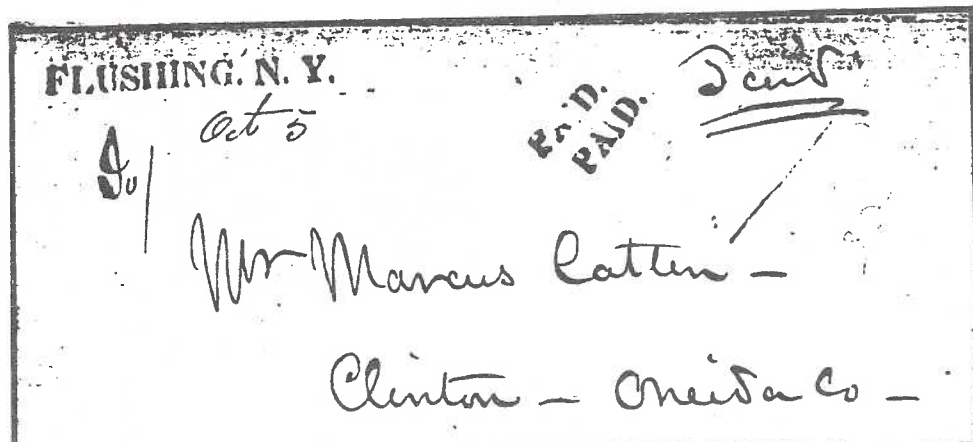 FLUSHING. N. Y.
Oct 5
PAID.
PAID.
Paid
Mr Marcus Catlin —
Clinton — Oneida Co —